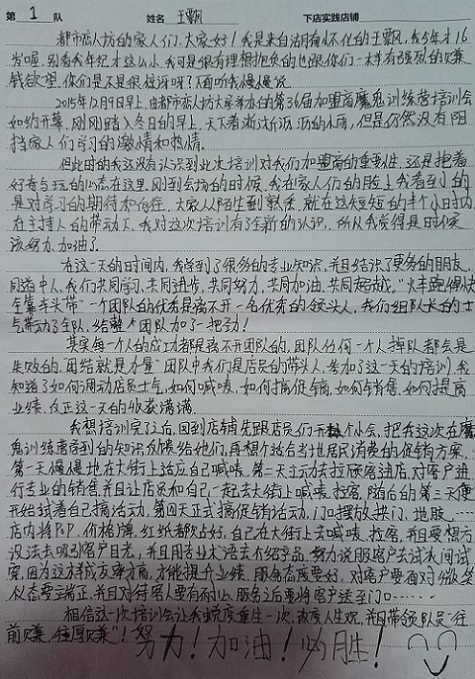 第 1 队 姓名 王飘 下店实践店铺
都市恋人坊的家人们，大家好！我是来自湖南怀化的王飘，我今年才16
岁喔，别看我年纪才这么小，我可是很有理想抱负的也跟你们一样有强烈的赚
钱欲望，你们是不是很惊讶呀？下面听我慢慢说。
2015年12月9日早上，由都市恋人坊大学举办的第36届加盟商魔鬼训练营培训会
如约开幕，刚刚踏入冬日的早上，天下着淅沥沥的小雨，但是仍然没有阻
挡家人们学习的激情和热情。
但此时的我还没有认识到此次培训对我们加盟商的重要性，还是抱着
好奇与玩的心态在这里，刚到会场的时候，我在家人们的脸上我看到的
是对学习的期待和向往，大家从陌生到熟悉，就在这短短的半个小时内
在主持人的带动下，我对这次培训有了全新的认识，所以我觉得是时候
该努力、加油了。
在这一天的时间内，我学到了很多的专业知识，并且结识了更多的朋友，
同道中人，我们共同学习，共同进步，共同努力，共同加油，共同超越。“火车跑得快
全靠车头带”一个团队的优秀是离不开一名优秀的领头人，我们组队长的士
气带动了全队，给整个团队加了一把劲！
其实每一个人的成功都是离不开团队的，团队任何一个人掉队都会是
失败的，“团结就是力量”团队中我们是店员的带头人，参加了这一天的培训，我
知道了如何调动店员士气，如何喊麦，如何搞促销，如何销售，如何提高
业绩，反正这一天的收获满满。
我想培训完了之后，回到店铺先跟店员们开个小会，把我这次在魔
鬼训练营学到的知识反馈给他们，再想个结合当地居民消费的促销方案，
第一天慢慢地在大街上适应自己喊麦，第二天主动去拉顾客进店，对客户进
行专业的销售，并且让店员和自己一起去大街上喊麦，拉客，随后的第三天便
开始试着自己搞活动，第四天正式搞促销活动，门口摆放拱门、地毯，……
店内将POP、价格牌、红纸都粘好，自己在大街上去喊麦，拉客，并且要想方
设法去吸引客户目光，并且用专业术语去介绍产品，努力说服客户去试衣间试
穿，因为这样成交率才高，才能提升业绩，服务态度要好，对客户要面对微笑
仪态要端正，并且对待客人要有耐心，服务后要将客户送至门口……
相信这一次培训会让我蜕变重生一次，改变人生观，并且带领队员“往
前赚，往厚赚”！努力！加油！必胜！